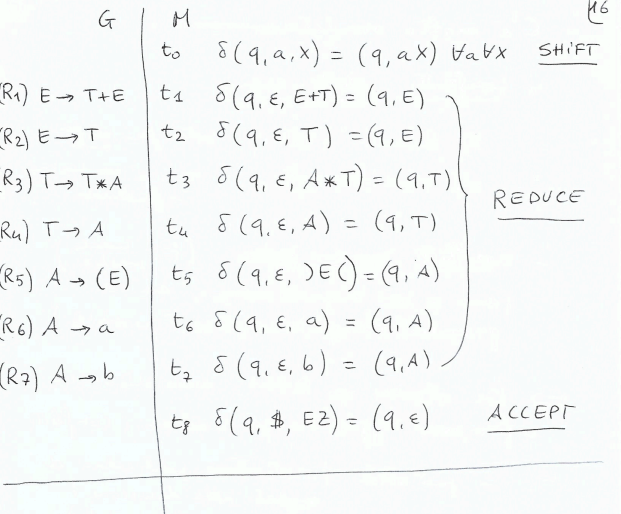 G M 46
t₀ δ(q,a,X) = (q,aX) ∀a∀X SHIFT
(R1) E→T+E t₁ δ(q,ε,E+T) = (q,E)
(R2) E→T t₂ δ(q,ε,T) = (q,E)
(R3) T→T*A t₃ δ(q,ε,A*T) = (q,T)
REDUCE
(R4) T→A t₄ δ(q,ε,A) = (q,T)
(R5) A→(E) t₅ δ(q,ε,)E() = (q,A)
(R6) A→a t₆ δ(q,ε,a) = (q,A)
(R7) A→b t₇ δ(q,ε,b) = (q,A)
t₈ δ(q,$,EZ) = (q,ε) ACCEPT